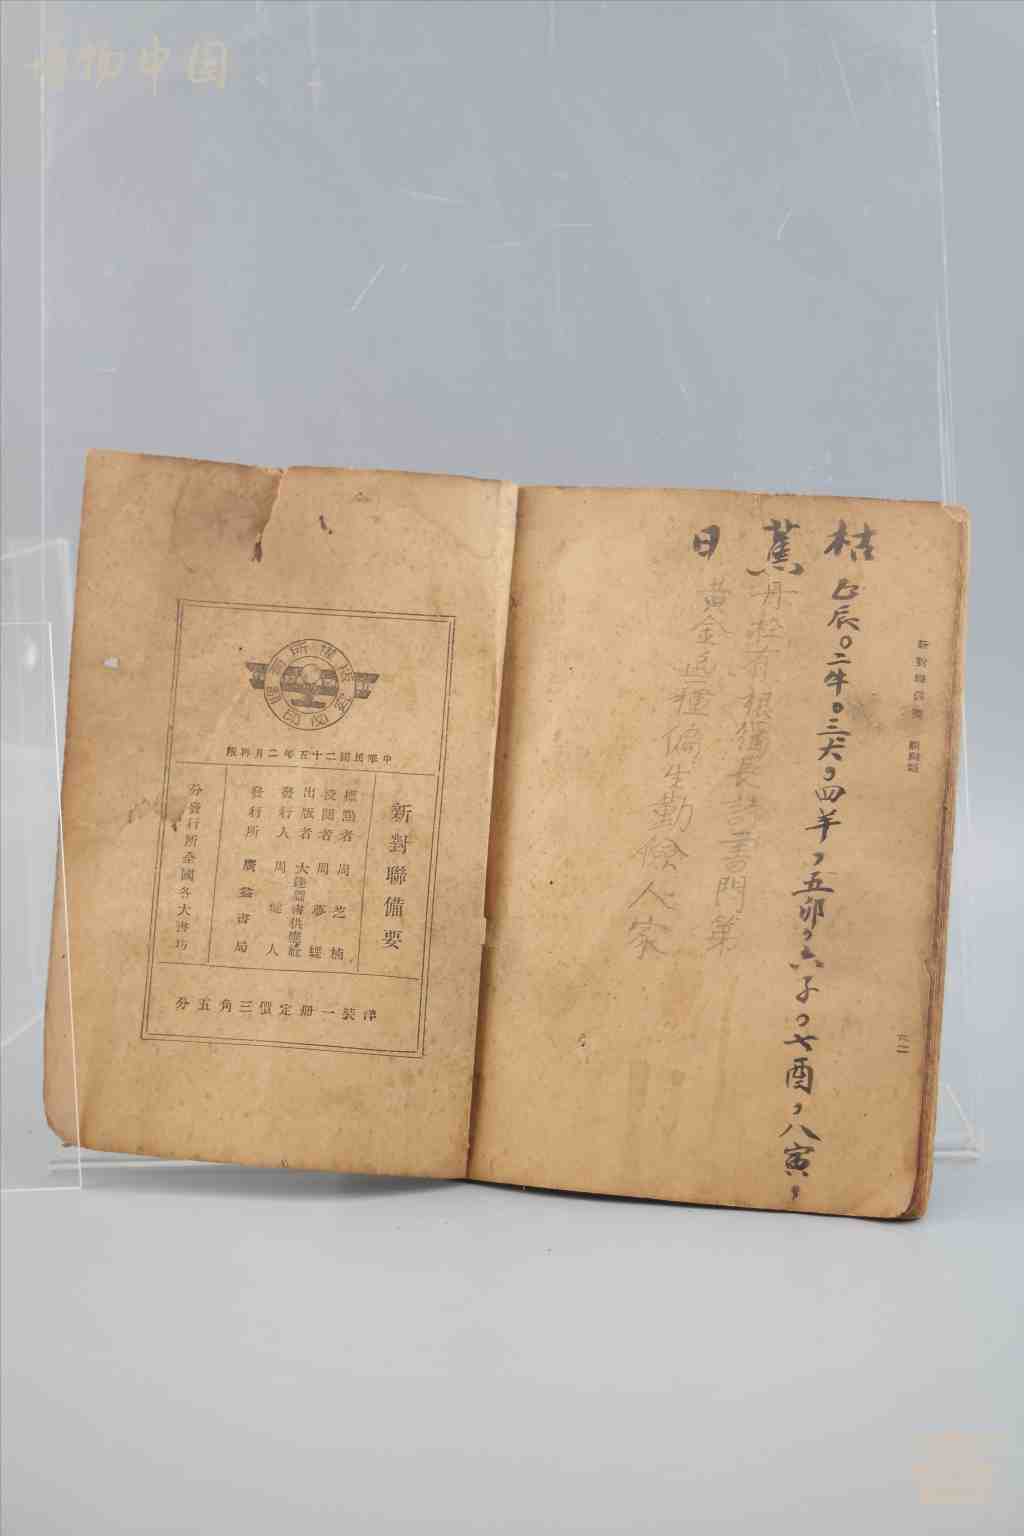 博物中国
枯
蕉
日
正辰。二牛。三犬，四羊，五卯，六子，七酉，八寅，
丹桂有根獨長詩書門第
黃金無種偏生勤儉人家
新對聯備要
六一
中華民國二十五年二月再版
新對聯備要
標點者 周芝
校閱者 周夢蝶
出版者 大達圖書供應社
發行人 周健人
發行所 廣益書局
分發行所全國各大書坊
洋裝一冊定價三角五分